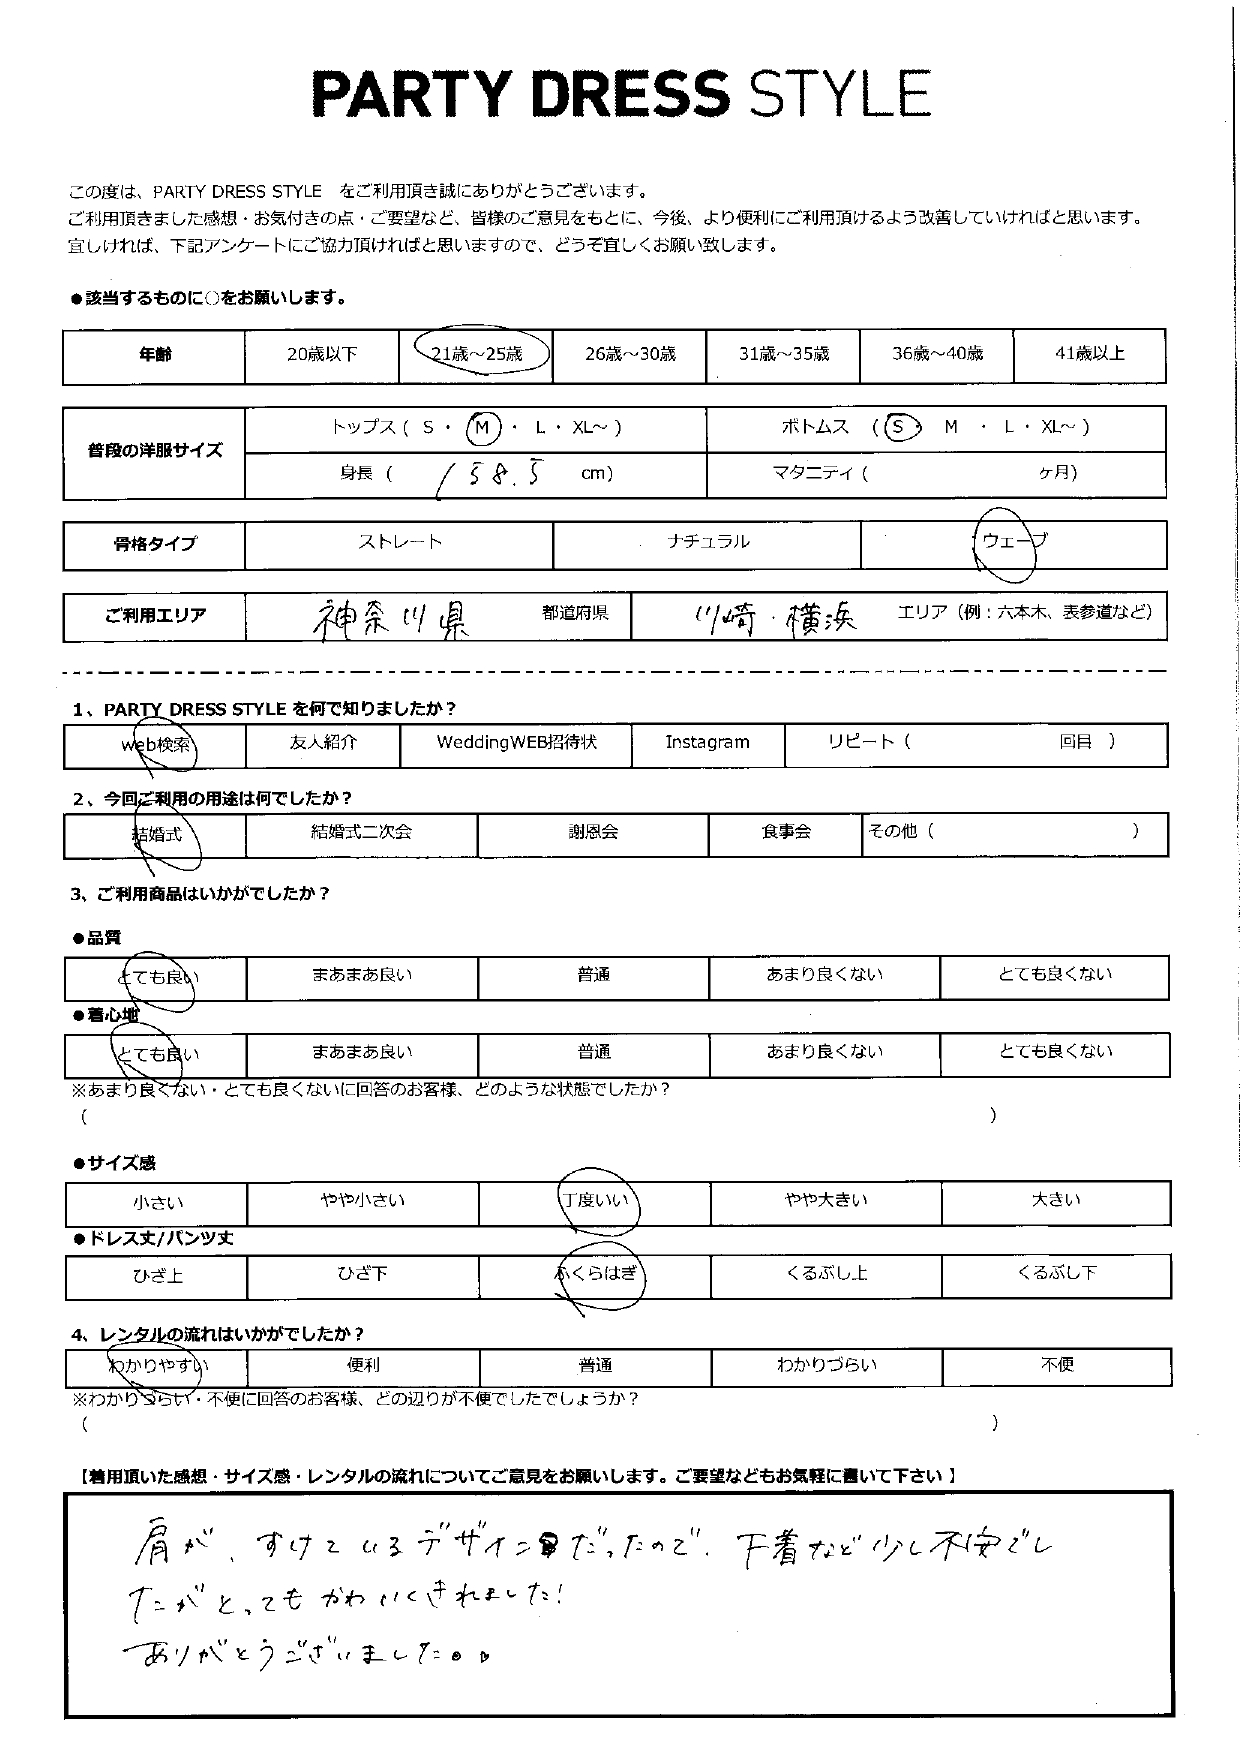 PARTY DRESS STYLE
この度は、PARTY DRESS STYLE をご利用頂き誠にありがとうございます。
ご利用頂きました感想・お気付きの点・ご要望など、皆様のご意見をもとに、今後、より便利にご利用頂けるよう改善していければと思います。
宜しければ、下記アンケートにご協力頂ければと思いますので、どうぞ宜しくお願い致します。
●該当するものに○をお願いします。
年齢 20歳以下 21歳～25歳 26歳～30歳 31歳～35歳 36歳～40歳 41歳以上
普段の洋服サイズ トップス ( S ・ M ・ L ・ XL～ ) ボトムス ( S ・ M ・ L ・ XL～ )
身長 ( 158.5 cm) マタニティ ( ヶ月)
骨格タイプ ストレート ナチュラル ウェーブ
ご利用エリア 神奈川県 都道府県 川崎・横浜 エリア（例：六本木、表参道など）
1、PARTY DRESS STYLE を何で知りましたか？
web検索 友人紹介 WeddingWEB招待状 Instagram リピート ( 回目 )
2、今回ご利用の用途は何でしたか？
結婚式 結婚式二次会 謝恩会 食事会 その他 ( )
3、ご利用商品はいかがでしたか？
●品質
とても良い まあまあ良い 普通 あまり良くない とても良くない
●着心地
とても良い まあまあ良い 普通 あまり良くない とても良くない
※あまり良くない・とても良くないに回答のお客様、どのような状態でしたか？
( )
●サイズ感
小さい やや小さい 丁度いい やや大きい 大きい
●ドレス丈/パンツ丈
ひざ上 ひざ下 ふくらはぎ くるぶし上 くるぶし下
4、レンタルの流れはいかがでしたか？
わかりやすい 便利 普通 わかりづらい 不便
※わかりづらい・不便に回答のお客様、どの辺りが不便でしたでしょうか？
( )
【着用頂いた感想・サイズ感・レンタルの流れについてご意見をお願いします。ご要望などもお気軽に書いて下さい 】
肩が、すけているデザインだったので、下着など少し不安でし
たがとってもかわいくきれました！
ありがとうございました。